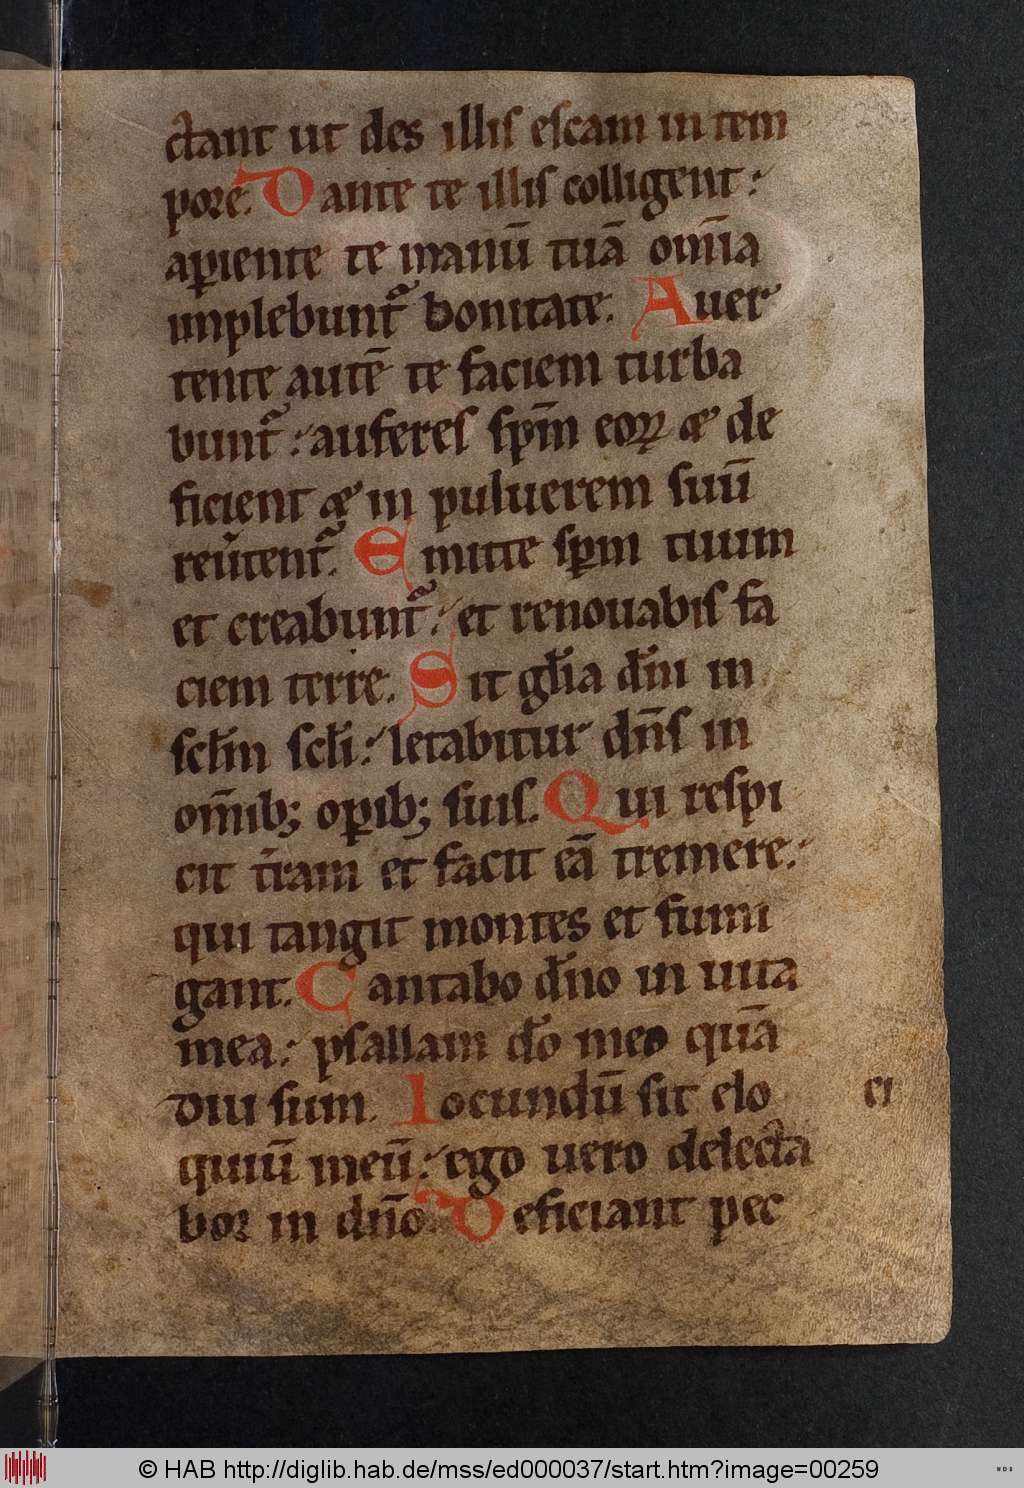 ctant ut des illis escam in tem
pore. Dante te illis colligent:
aꝑiente te manū tuā om̄ia
implebunt᷑ bonitate. Auer
tente autē te faciem turba
bunt᷑: auferes sp̄m eoꝝ & de
ficient & in puluerem suū
reu᷑tent᷑. Emitte sp̄m tuum
et creabunt᷑: et renouabis fa
ciem terre. Sit gl̄ia dn̄i in
scl̄m scl̄i: letabitur dn̄s in
om̄ib; oꝑib; suis. Qui respi
cit t̄ram et facit eā tremere:
qui tangit montes et fumi
gant. Cantabo dn̄o in uita
mea: psallam dō meo quā
diu sum. Iocundū sit elo
ei
quiū meū: ego uero delecta
bor in dn̄o. Deficiant pec
© HAB http://diglib.hab.de/mss/ed000037/start.htm?image=00259